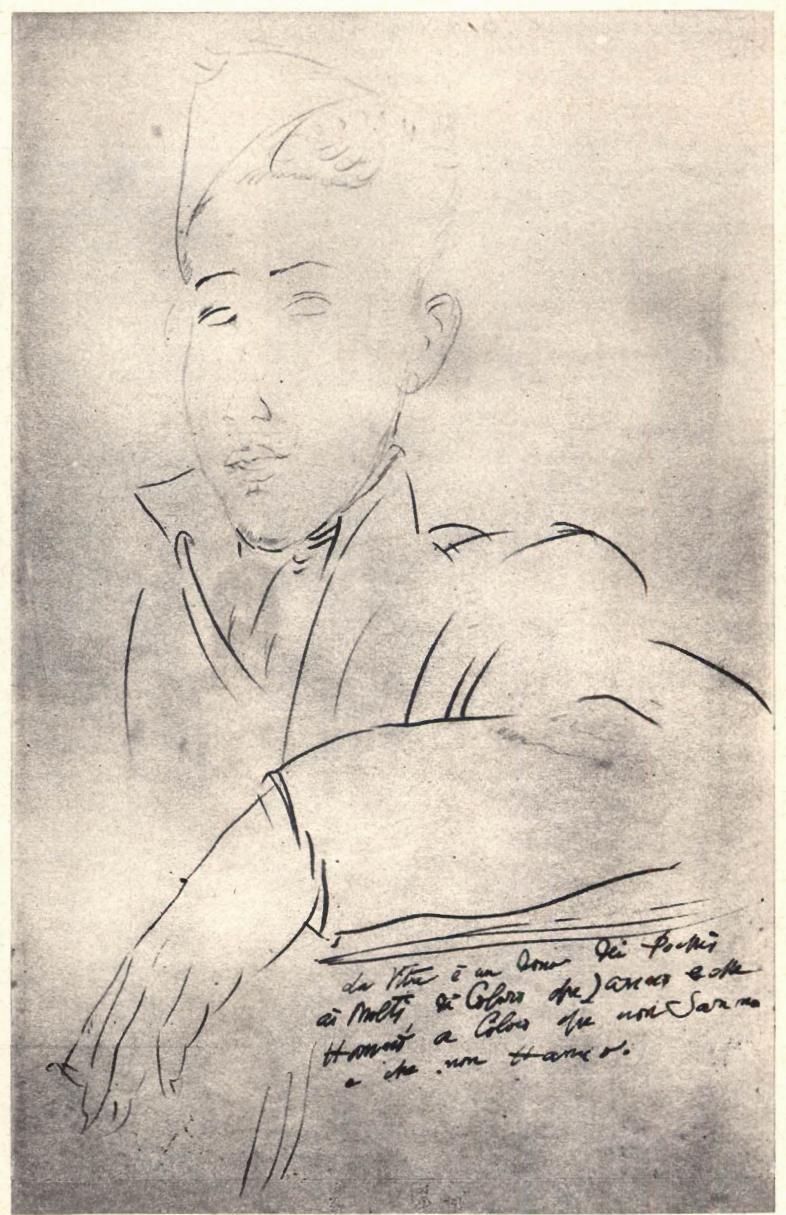 La Vita è un Dono dei Pochi
ai Molti di Coloro che Sanno e che
Hanno a Coloro che non Sanno
e che non Hanno.